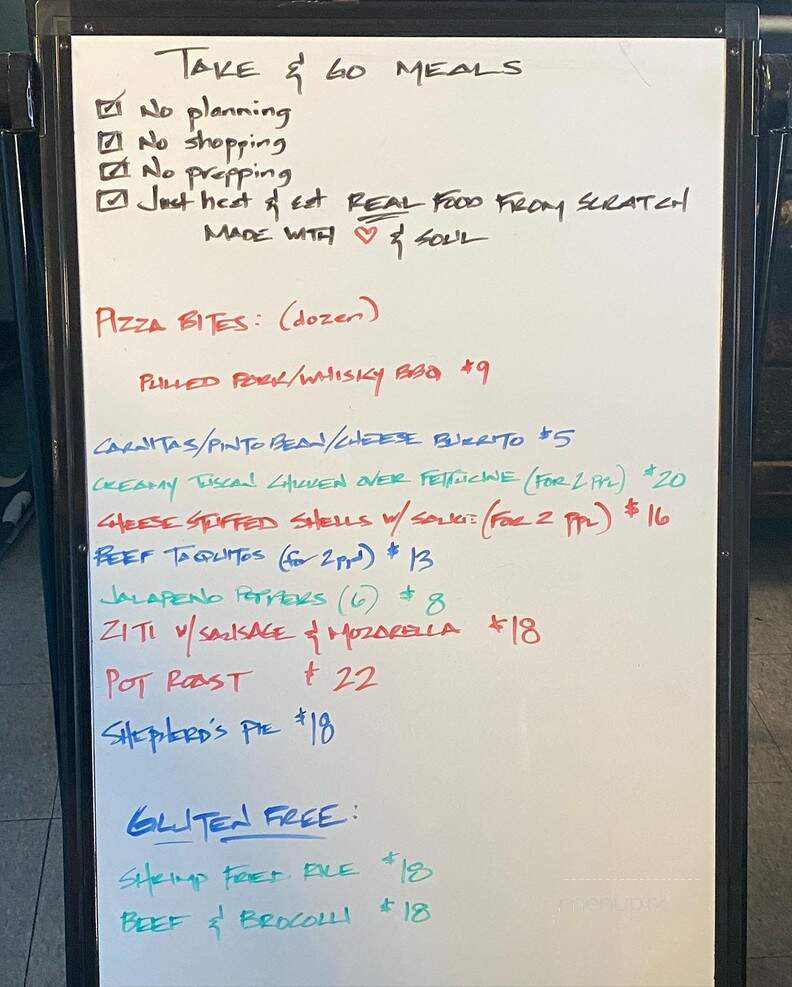 TAKE & GO MEALS
☑ No planning
☑ No shopping
☑ No prepping
☑ Just heat & eat REAL FOOD FROM SCRATCH
MADE WITH ♡ & SOUL
PIZZA BITES: (dozen)
PULLED PORK/WHISKY BBQ $9
CARNITAS/PINTO BEAN/CHEESE BURRITO $5
CREAMY TUSCAN CHICKEN OVER FETTUCINE (FOR 2 PPL) $20
CHEESE STUFFED SHELLS W/ SAUCE (FOR 2 PPL) $16
BEEF TAQUITOS (for 2 ppl) $13
JALAPENO POPPERS (6) $8
ZITI W/SAUSAGE & MOZARELLA $18
POT ROAST $22
SHEPHERD'S PIE $18
GLUTEN FREE:
SHRIMP FRIED RICE $18
BEEF & BROCOLLI $18
menupix